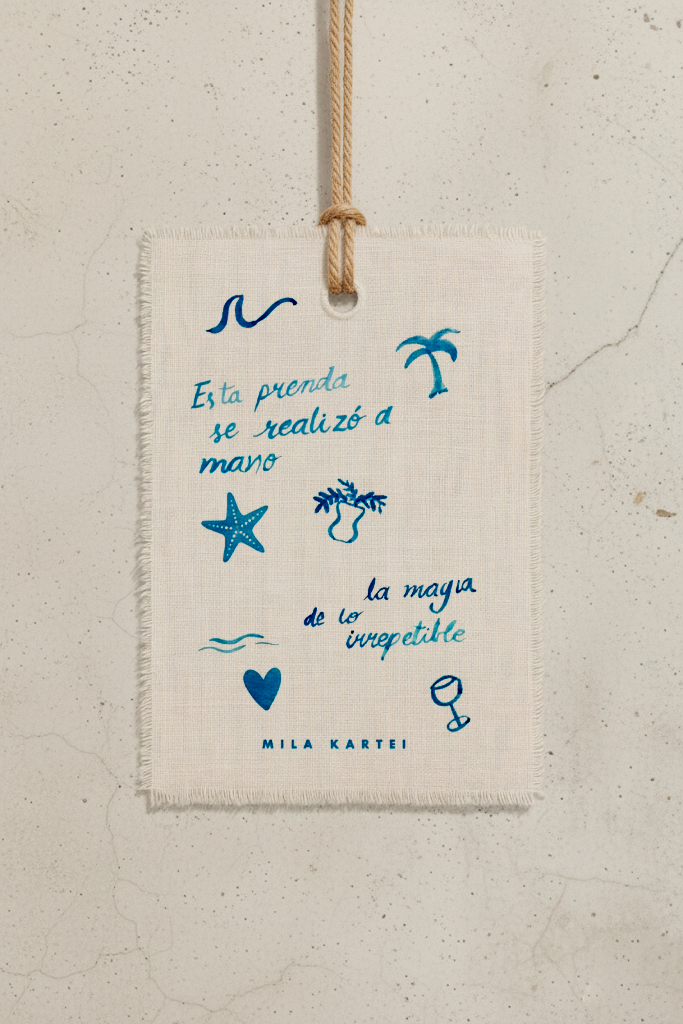 Esta prenda
se realizó a
mano
la magia
de lo
irrepetible
MILA KARTEI